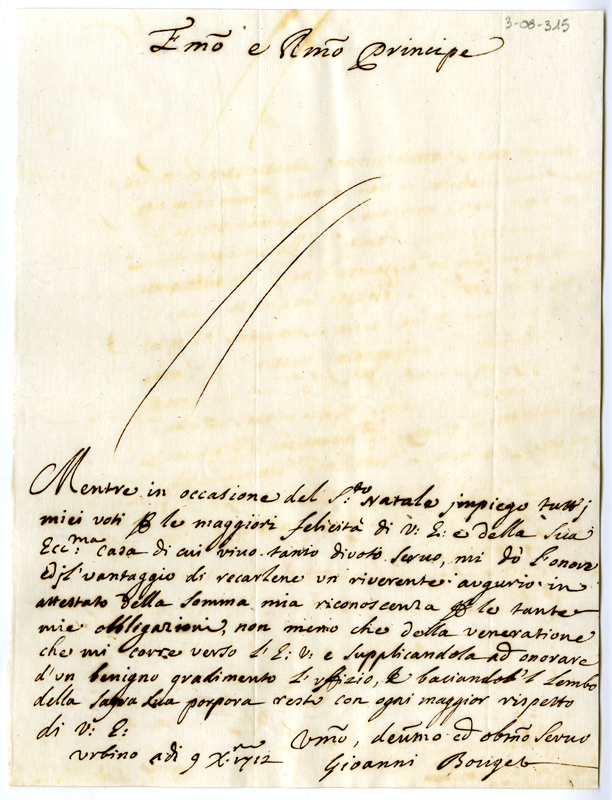 3-08-315
Emõ e Rmõ Principe
Mentre in occasione del S:to Natale jmpiego tutti j
miei voti p le maggiori felicità di V: E: e della Sua
Ecc:ma Casa di cui vivo tanto divoto servo, mi dò l'onore
ed j l'vantaggio di recarlene un riverente augurio in
attestato della somma mia riconoscenza p le tante
mie obbligazioni, non meno che della veneratione
che mi corre verso l'E: V: e supplicandola ad onorare
d'un benigno gradimento l'uffizio, e baciandol'l lembo
della sagra sua porpora resto con ogni maggior rispetto
di V: E:
Vmõ, deũmo ed obmõ Servo
Urbino adi 9 X:mre 1712
Gioanni Bouget